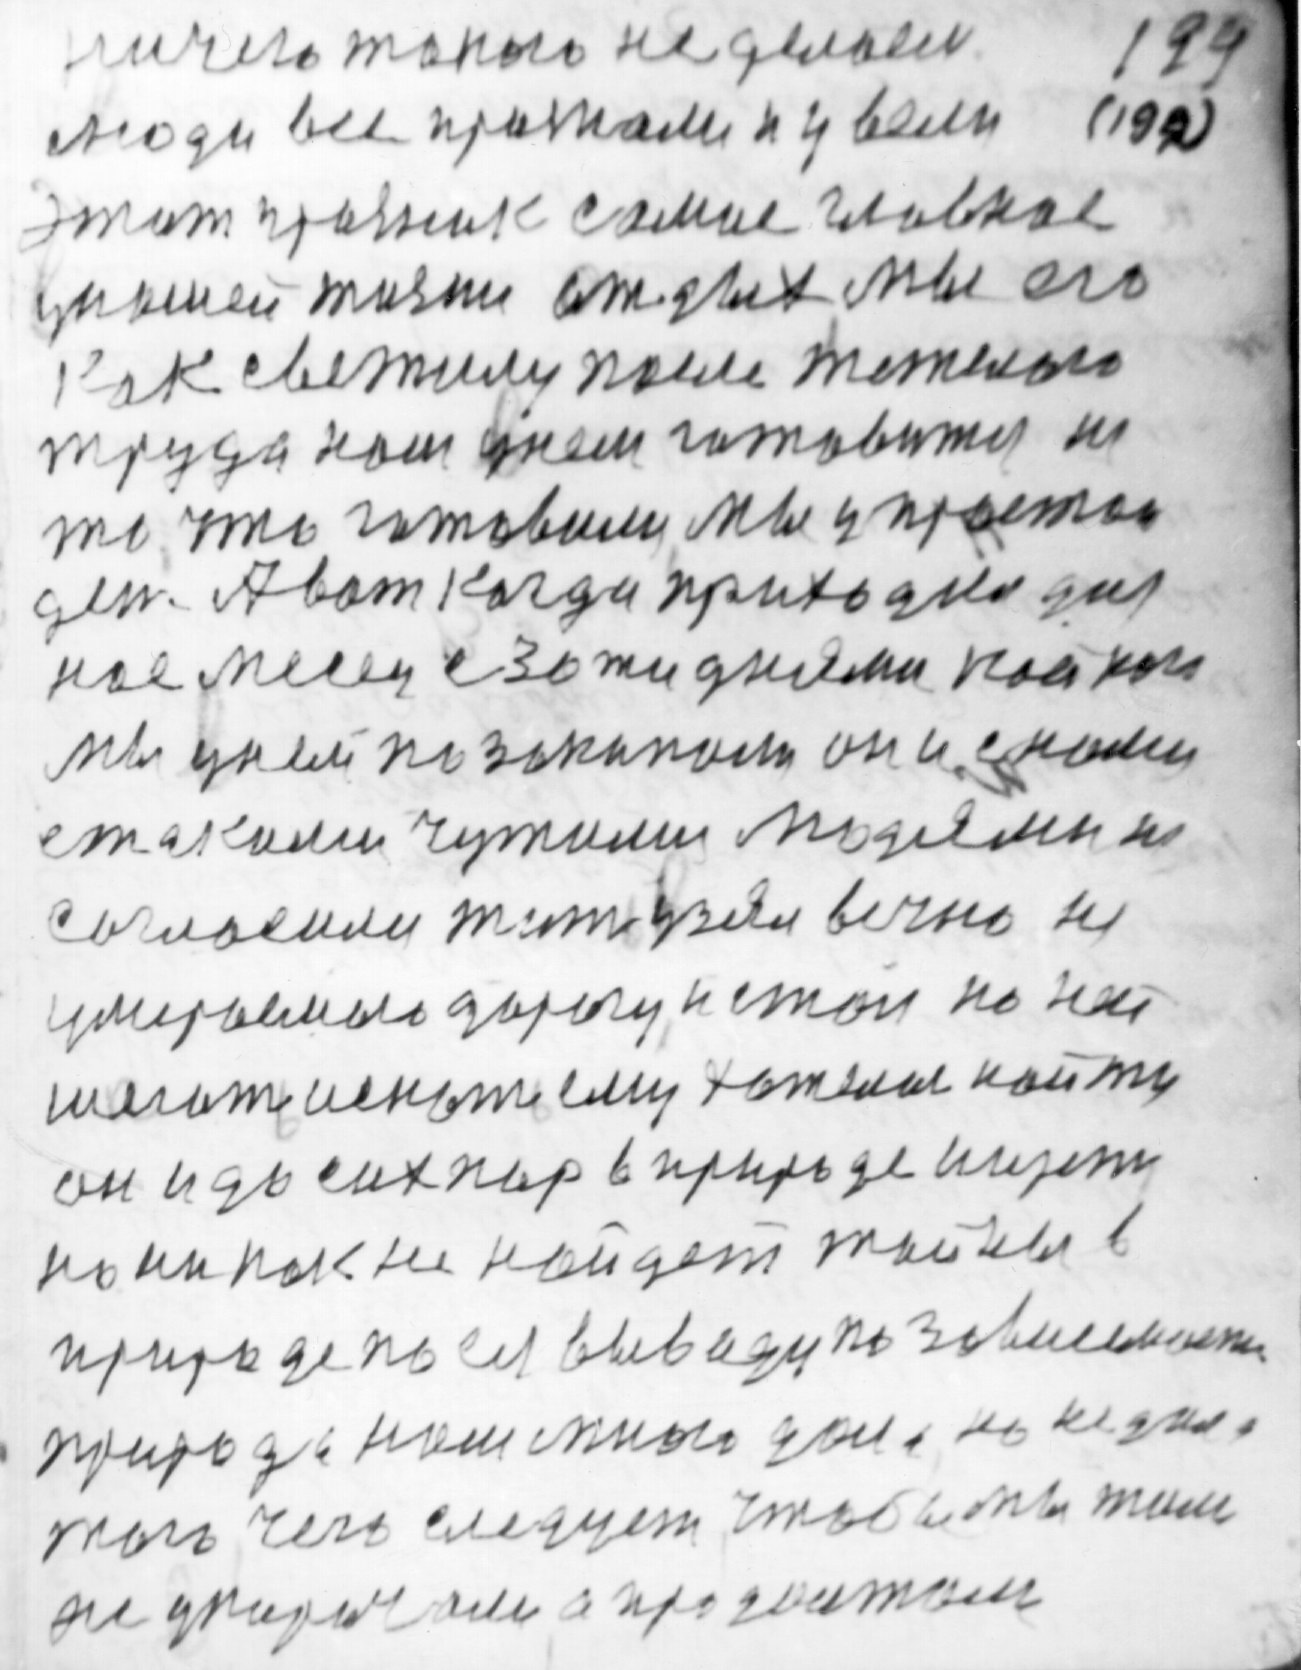 ничего такого не делаем 199
люди все прожили и увели (192)
этот празник самое главное
унашей жизни отдых мы его
как светилу после тежелого
труда нам унем готовится не
то что готовили мы упростой
ден. А вот когда приходило дан
ное месец с 30 ти днями кой кого
мы унем позакапали он и снами
стакими чужими людями не
согласили жит узял вечно не
умираемою дорогу, и стал по ней
шагать искать ему хотелос найти
он и до сих пор в природе ищет
но никак не найдет тайны в
природе посел выводу по зависемости
природа нам много дала, но не дала
того чего следует чтобы мы жили
не умирали а продолжали